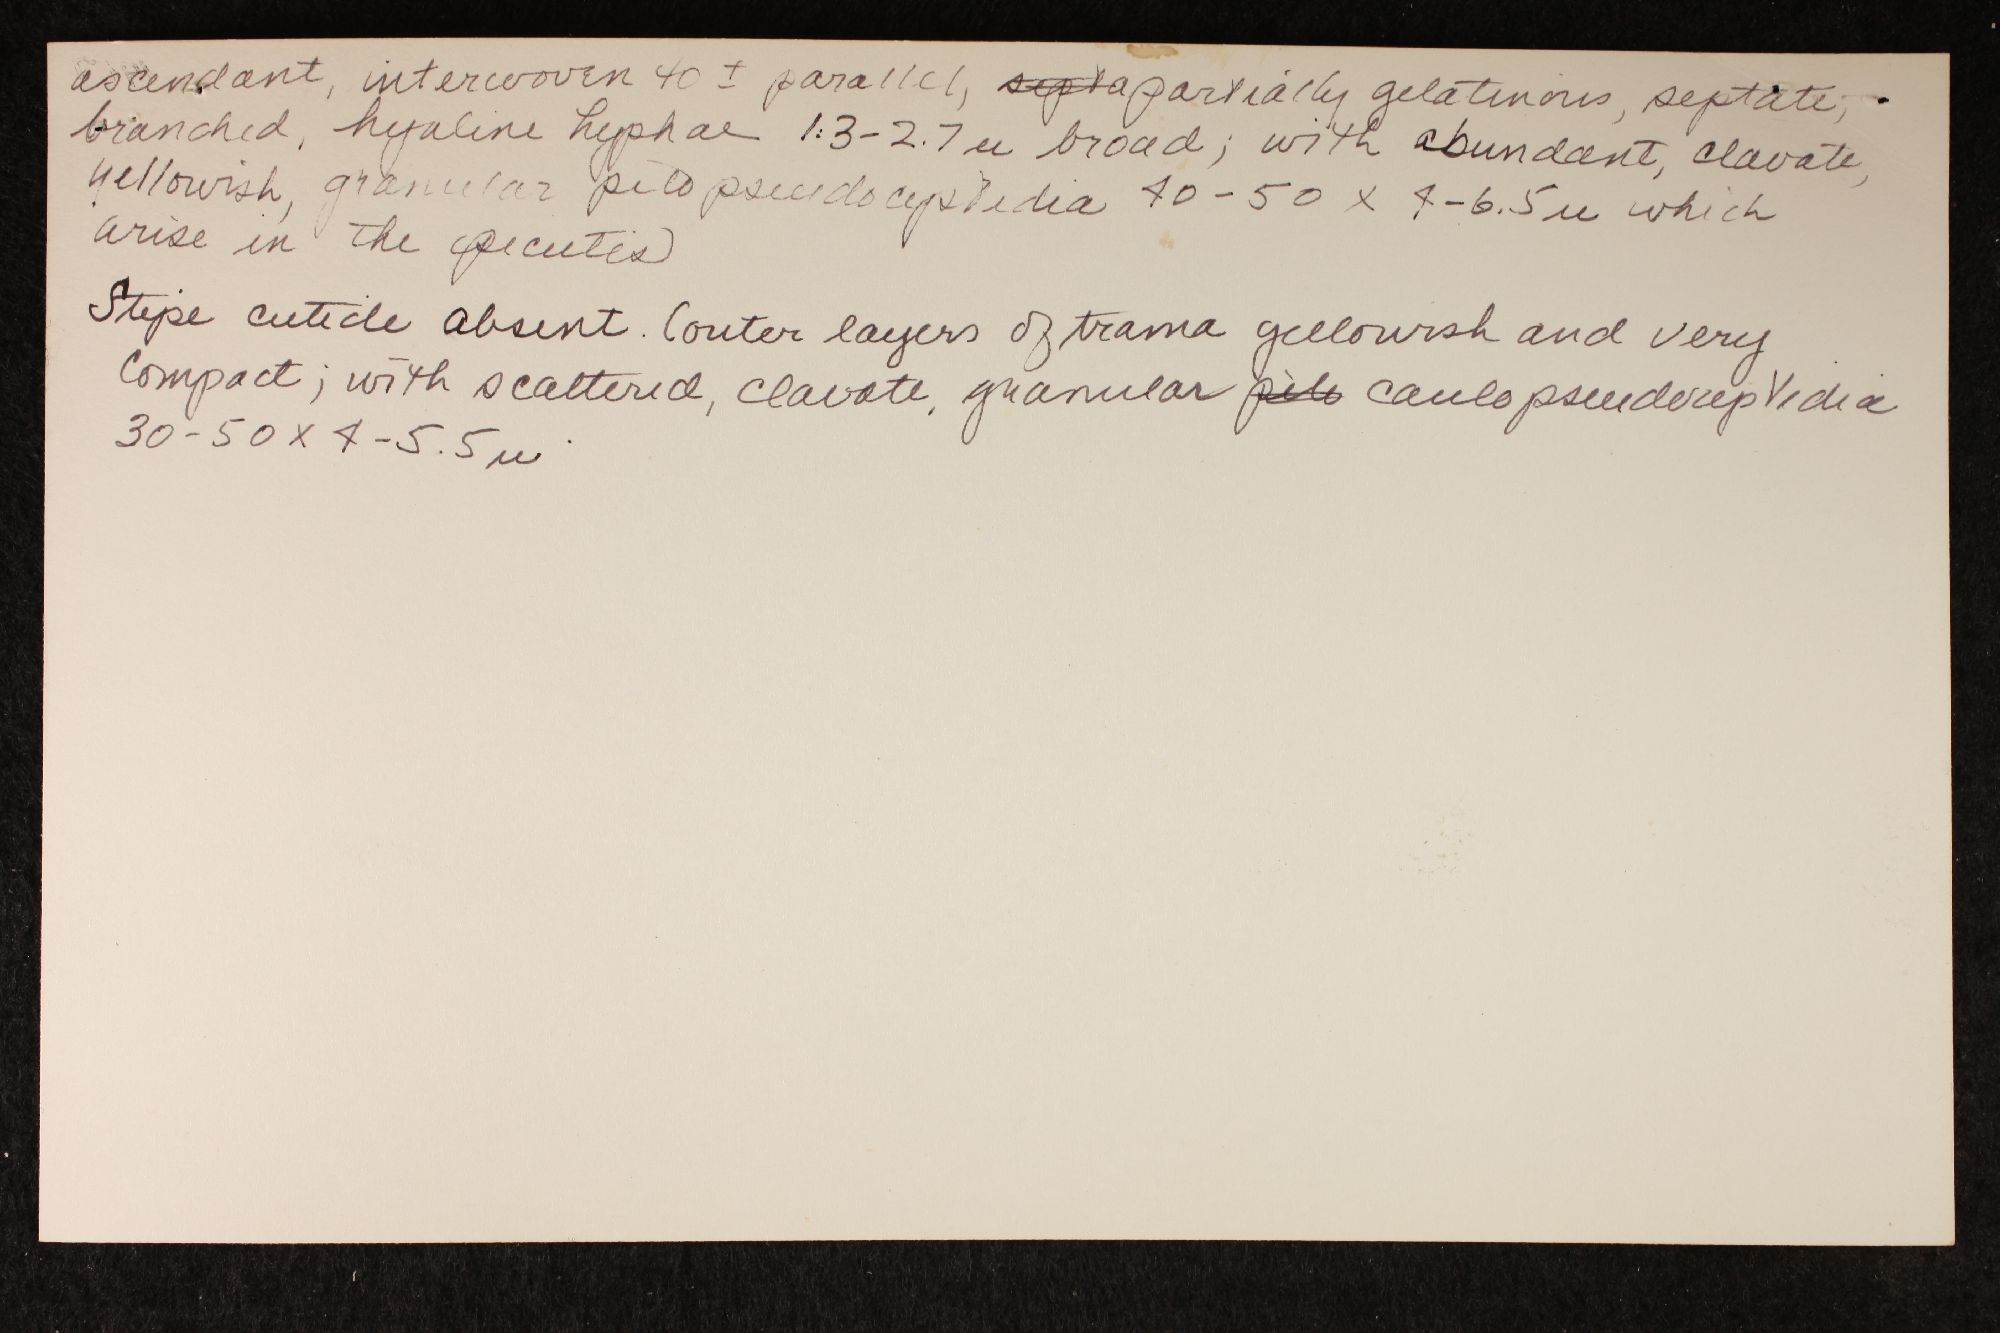 ascendant, interwoven to ± parallel, septa partially gelatinous, septate,
branched, hyaline hyphae 1.3-2.7 u broad; with abundant, clavate,
yellowish, granular pilopseudocystidia 40-50 x 4-6.5 u which
arise in the epicutis)
Stipe cuticle absent. (outer layers of trama yellowish and very
compact; with scattered, clavate, granular pilo caulopseudocystidia
30-50 x 4-5.5 u